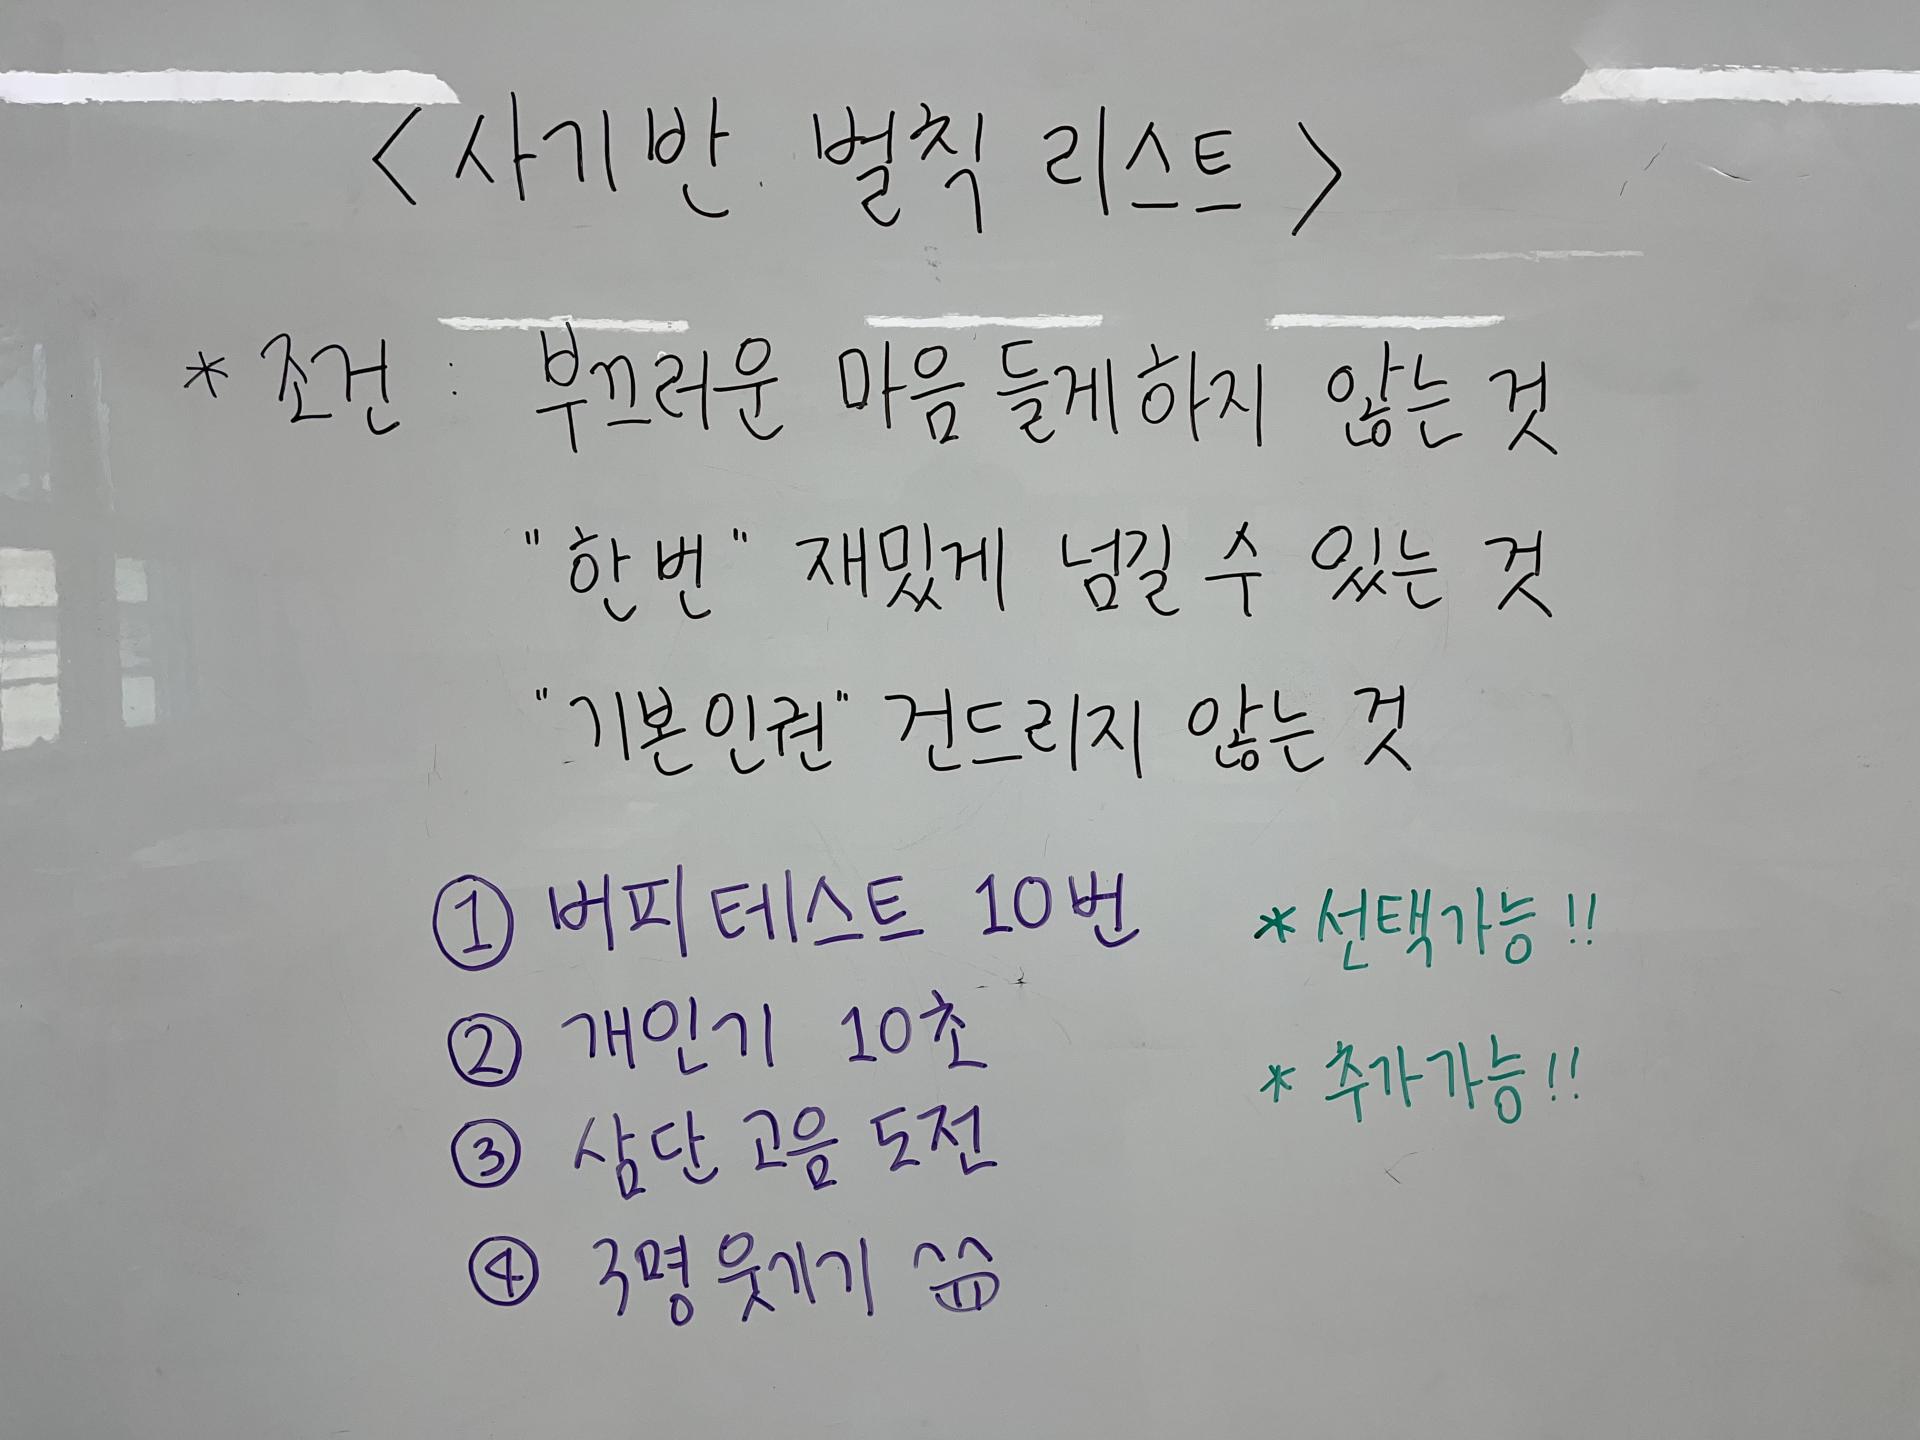 <사기반 벌칙 리스트>
* 조건 : 부끄러운 마음 들게하지 않는 것
"한번" 재밌게 넘길 수 있는 것
"기본인권" 건드리지 않는 것
① 버피테스트 10번
* 선택가능!!
② 개인기 10초
* 추가가능!!
③ 삼단 고음 도전
④ 3명 웃기기